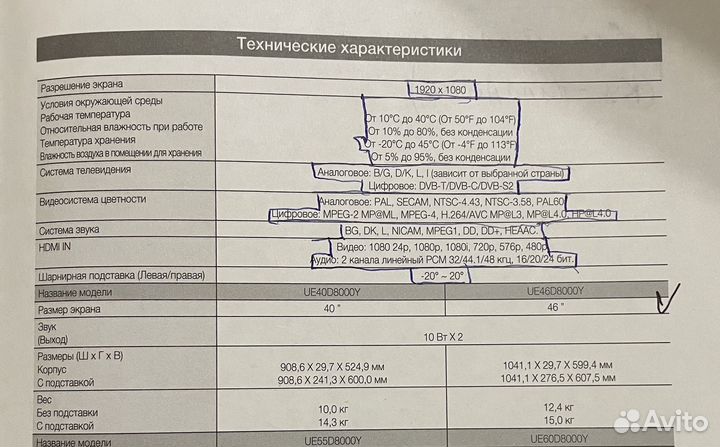 Технические характеристики
Разрешение экрана 1920 x 1080
Условия окружающей среды
Рабочая температура От 10°C до 40°C (От 50°F до 104°F)
Относительная влажность при работе От 10% до 80%, без конденсации
Температура хранения От -20°C до 45°C (От -4°F до 113°F)
Влажность воздуха в помещении для хранения От 5% до 95%, без конденсации
Система телевидения Аналоговое: B/G, D/K, L, I (зависит от выбранной страны)
Цифровое: DVB-T/DVB-C/DVB-S2
Видеосистема цветности Аналоговое: PAL, SECAM, NTSC-4.43, NTSC-3.58, PAL60
Цифровое: MPEG-2 MP@ML, MPEG-4, H.264/AVC MP@L3, MP@L4.0, HP@L4.0
Система звука BG, DK, L, NICAM, MPEG1, DD, DD+, HEAAC.
HDMI IN Видео: 1080 24p, 1080p, 1080i, 720p, 576p, 480p
Аудио: 2 канала линейный PCM 32/44.1/48 кгц, 16/20/24 бит.
Шарнирная подставка (Левая/правая) -20° ~ 20°
Название модели UE40D8000Y UE46D8000Y
Размер экрана 40 " 46 "
Звук
(Выход) 10 Вт X 2
Размеры (Ш x Г x В)
Корпус 908,6 X 29,7 X 524,9 мм 1041,1 X 29,7 X 599,4 мм
С подставкой 908,6 X 241,3 X 600,0 мм 1041,1 X 276,5 X 607,5 мм
Вес
Без подставки 10,0 кг 12,4 кг
С подставкой 14,3 кг 15,0 кг
Название модели UE55D8000Y UE60D8000Y
Avito